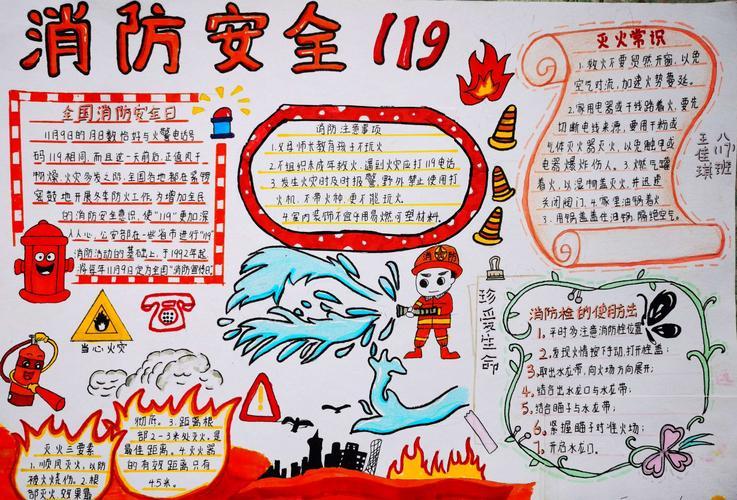 消防安全 119
全国消防安全日
11月9日的月日数恰好与火警电话号
码119相同,而且这一天前后,正值风干
物燥、火灾多发之际,全国各地都在紧锣
密鼓地开展冬季防火工作。为增加全民
的消防安全意识,使"119"更加深
入人心,公安部在一些省市进行"119"
消防活动的基础上,于1992年起,
将每年11月9日定为全国"消防宣传日"
消防注意事项
1.父母师长教育孩子不玩火
2.不组织未成年救火,遇到火灾应打119电话,
3.发生火灾时及时报警,野外禁止使用打
火机,不带火种,更不能玩火。
4.室内装饰不宜用易燃可塑材料.
灭火常识
1.救火不要贸然开窗,以免
空气对流,加速火势蔓延。
2.家用电器或干线路着火,要先
切断电线来源,要用干粉或
气体灭火器灭火,以免触电或
电器爆炸伤人。3.燃气罐
着火,以湿物盖灭火,并迅速
关闭阀门.4.家里油锅着火
3.用锅盖盖住油锅,隔绝空气。
八(11)班
王佳琪
珍爱生命
当心火灾
消防栓的使用方法
1.平时多注意消防栓位置
2.发现火情按下手动,打开栓盖;
3.取出水龙带,向火场方向展开;
4.结合出水龙口与水龙带;
5.结合瞄子与水龙带;
6.紧握瞄子对准火场;
7.开启水龙口.
灭火三要素
1.顺风灭火,以防
被火烧伤。2.根
部灭火,效果最
彻底。3.距离根
部2-3米处灭火,是
最佳距离。4.灭火器
的有效距离只有
45米。